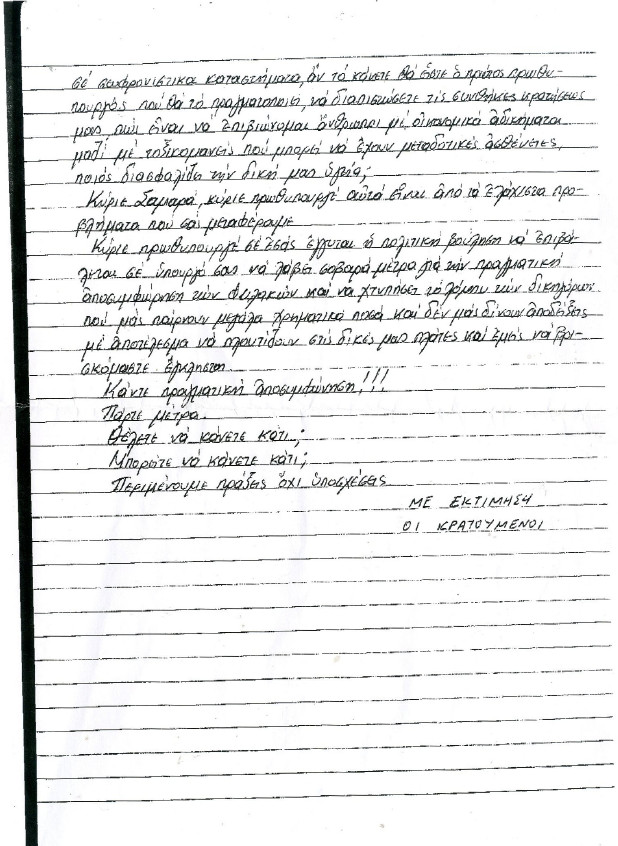 σέ σωφρονιστικα καταστήματα, ἄν τό κάνετε θά εἶστε ὁ πρῶτος πρωθυ-
πουργός πού θά τό πραγματοποιεῖ, νά διαπιστώσετε τίς συνθῆκες κρατήσεως
μας, πῶς εἶναι νά ἐπιβιώνομαι ἄνθρωποι μέ οἰκονομικά ἀδικήματα
μαζί μέ τοξικομανείς πού μπορεί νά ἔχουν μεταδοτικές ἀσθένειες,
ποιός διασφαλίζει τήν δική μας ὑγεία;
Κύριε Σαμαρά, κύριε πρωθυπουργέ αὐτά εἶναι ἀπό τά ἐλάχιστα προ-
βλήματα πού σας μεταφέραμε
Κύριε πρωθυπουργέ σέ ἐσᾶς ἔγγυται ἡ πολιτική βούληση νά ἐπιβά-
λεται σέ ὑπουργό σας νά λάβει σοβαρά μέτρα γιά τήν πραγματική
ἀποσυμφώρηση τῶν φυλακῶν καί νά χτυπήσει τό λόμπυ τῶν δικηγόρων
πού μᾶς παίρνουν μεγάλα χρηματικά ποσά καί δέν μᾶς δίνουν ἀποδείξεις
μέ ἀποτέλεσμα νά πλουτίζουν στίς δικές μας πλάτες καί ἐμεῖς νά βρι-
σκόμαστε ἔγκλειστοι.
Κάντε πραγματική ἀποσυμφώνηση!!!
Πάρτε μέτρα.
Θέλετε νά κάνετε κάτι;
Μπορῆτε νά κάνετε κάτι;
Περιμένουμε πράξεις ὄχι ὑποσχέσεις
ΜΕ ΕΚΤΙΜΗΣΗ
ΟΙ ΚΡΑΤΟΥΜΕΝΟΙ